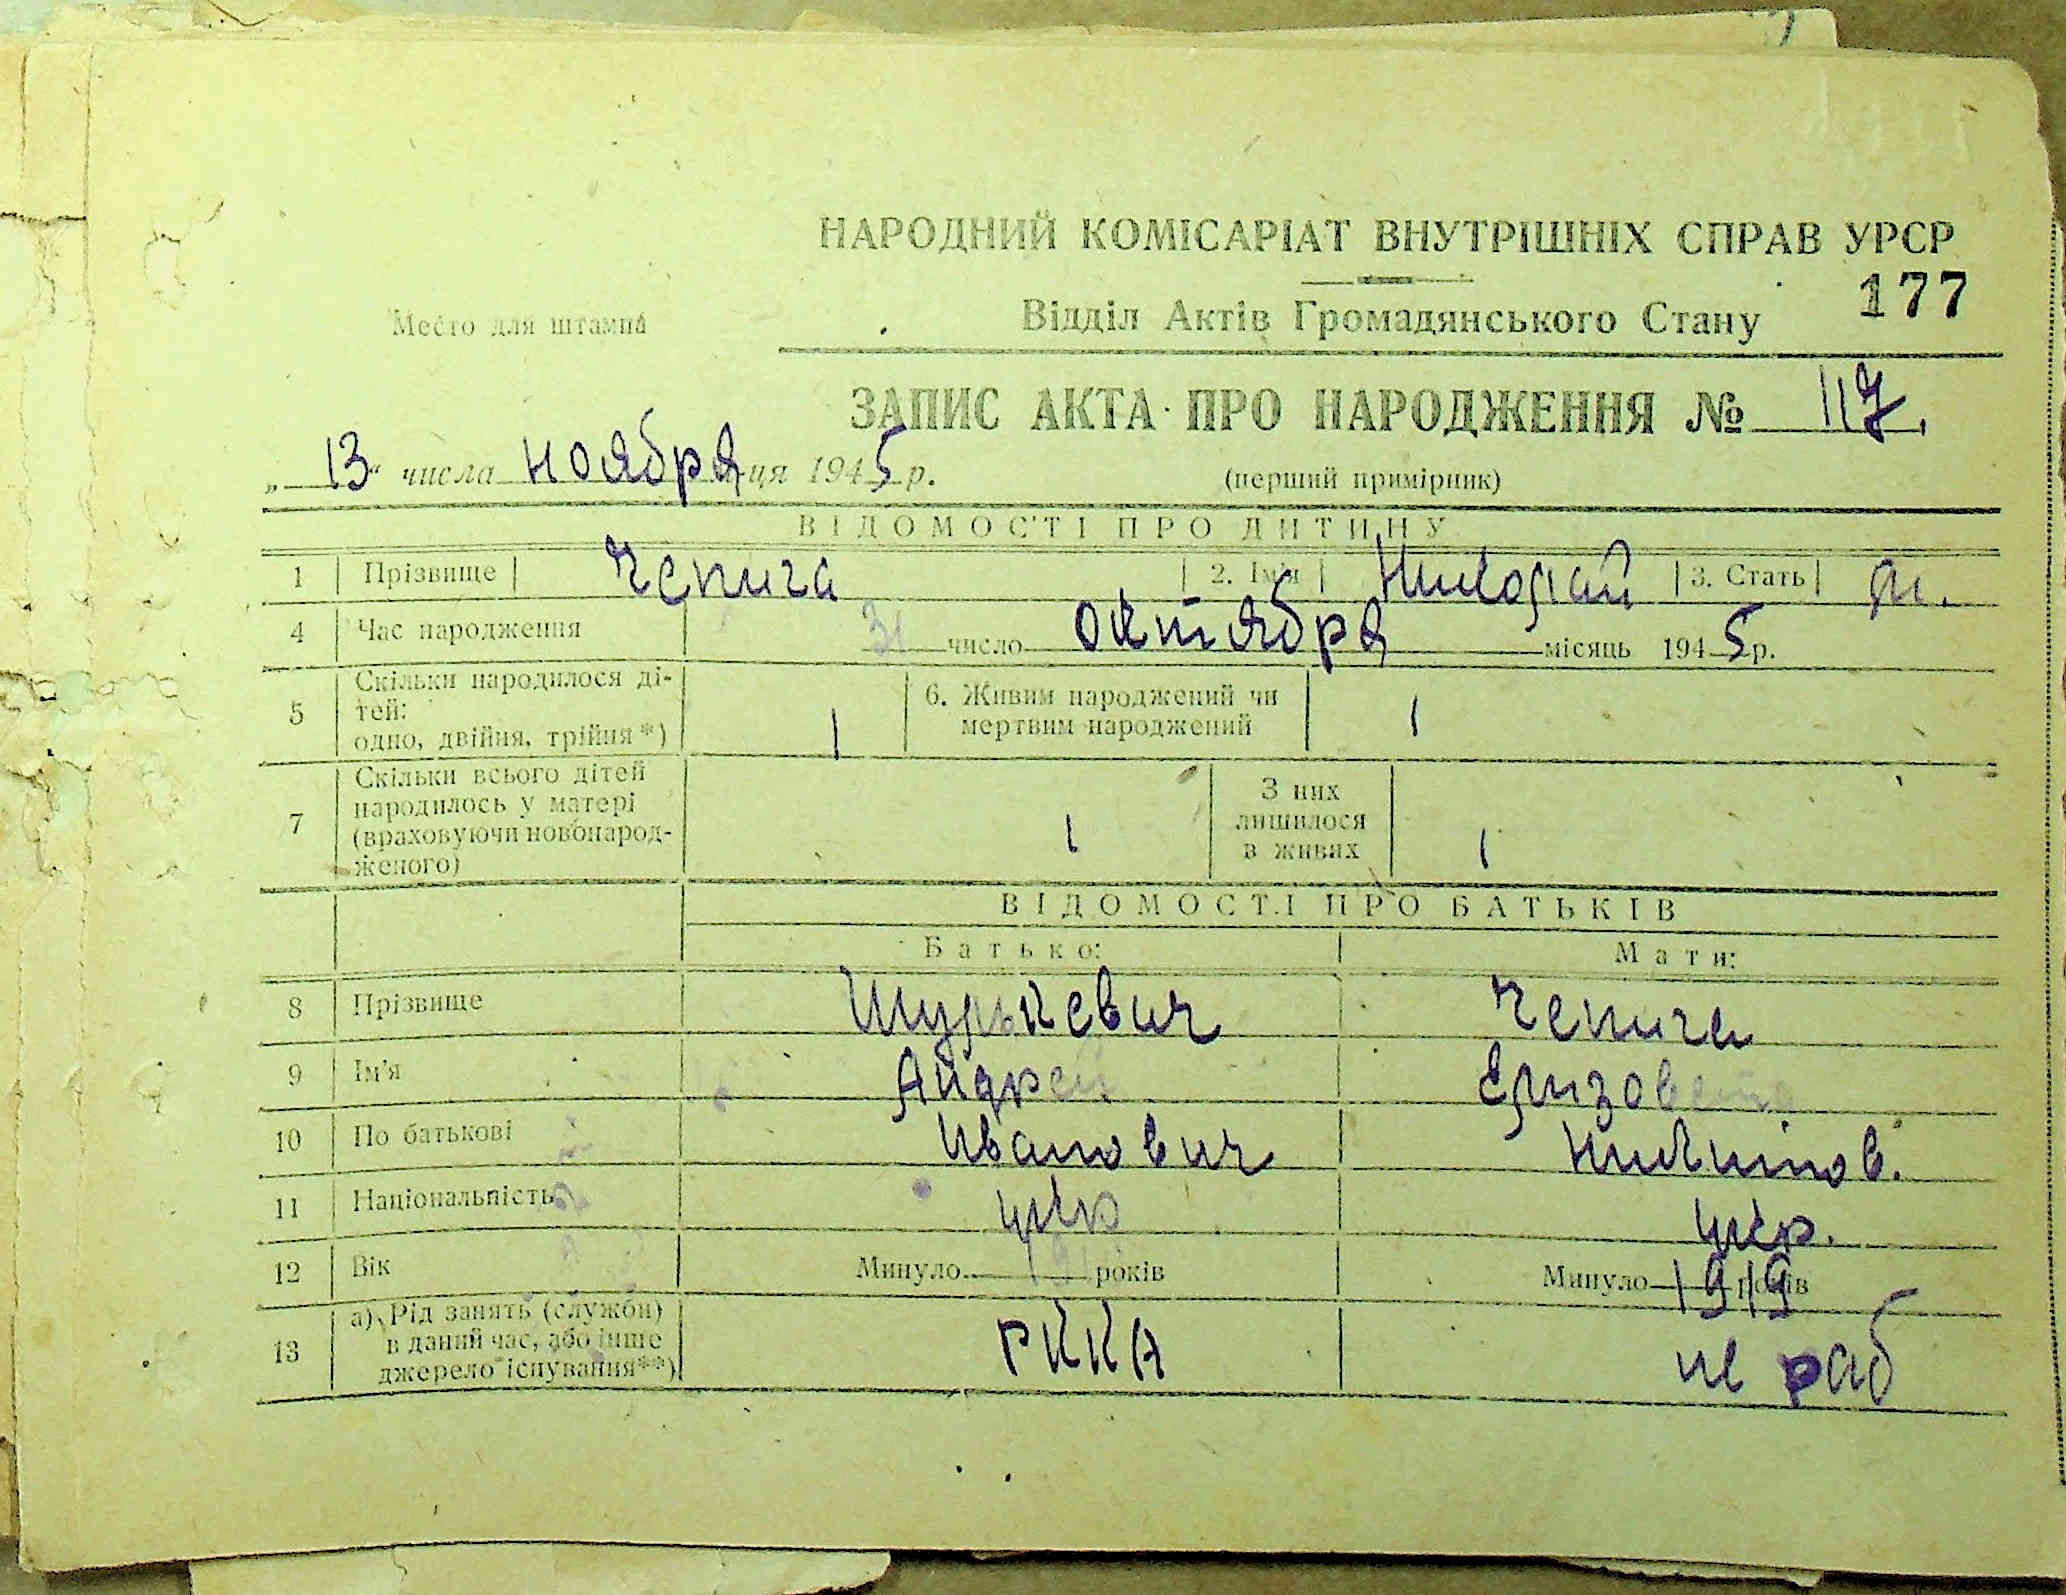 НАРОДНИЙ КОМІСАРІАТ ВНУТРІШНІХ СПРАВ УРСР
177
Место для штампа
Відділ Актів Громадянського Стану
ЗАПИС АКТА ПРО НАРОДЖЕННЯ № 117.
„ 13 “ числа ноября ця 1945 р.
(перший примірник)
ВІДОМОСТІ ПРО ДИТИНУ
1 Прізвище Чепига 2. Ім'я Николай 3. Стать м.
4 Час народження 31 число октября місяць 1945 р.
5 Скільки народилося ді-
тей:
одно, двійня, трійня*) 1
6. Живим народжений чи
мертвим народжений 1
7 Скільки всього дітей
народилось у матері
(враховуючи новонарод-
женого) 1
З них
лишилося
в живих 1
ВІДОМОСТІ ПРО БАТЬКІВ
Батько: Мати:
8 Прізвище Шурькевич Чепига
9 Ім'я Андрей Елизовета
10 По батькові Иванович Никитов.
11 Національність укр укр.
12 Вік Минуло років Минуло 1919 років
13 а) Рід занять (служби)
в даний час, або інше
джерело існування**) РККА не раб